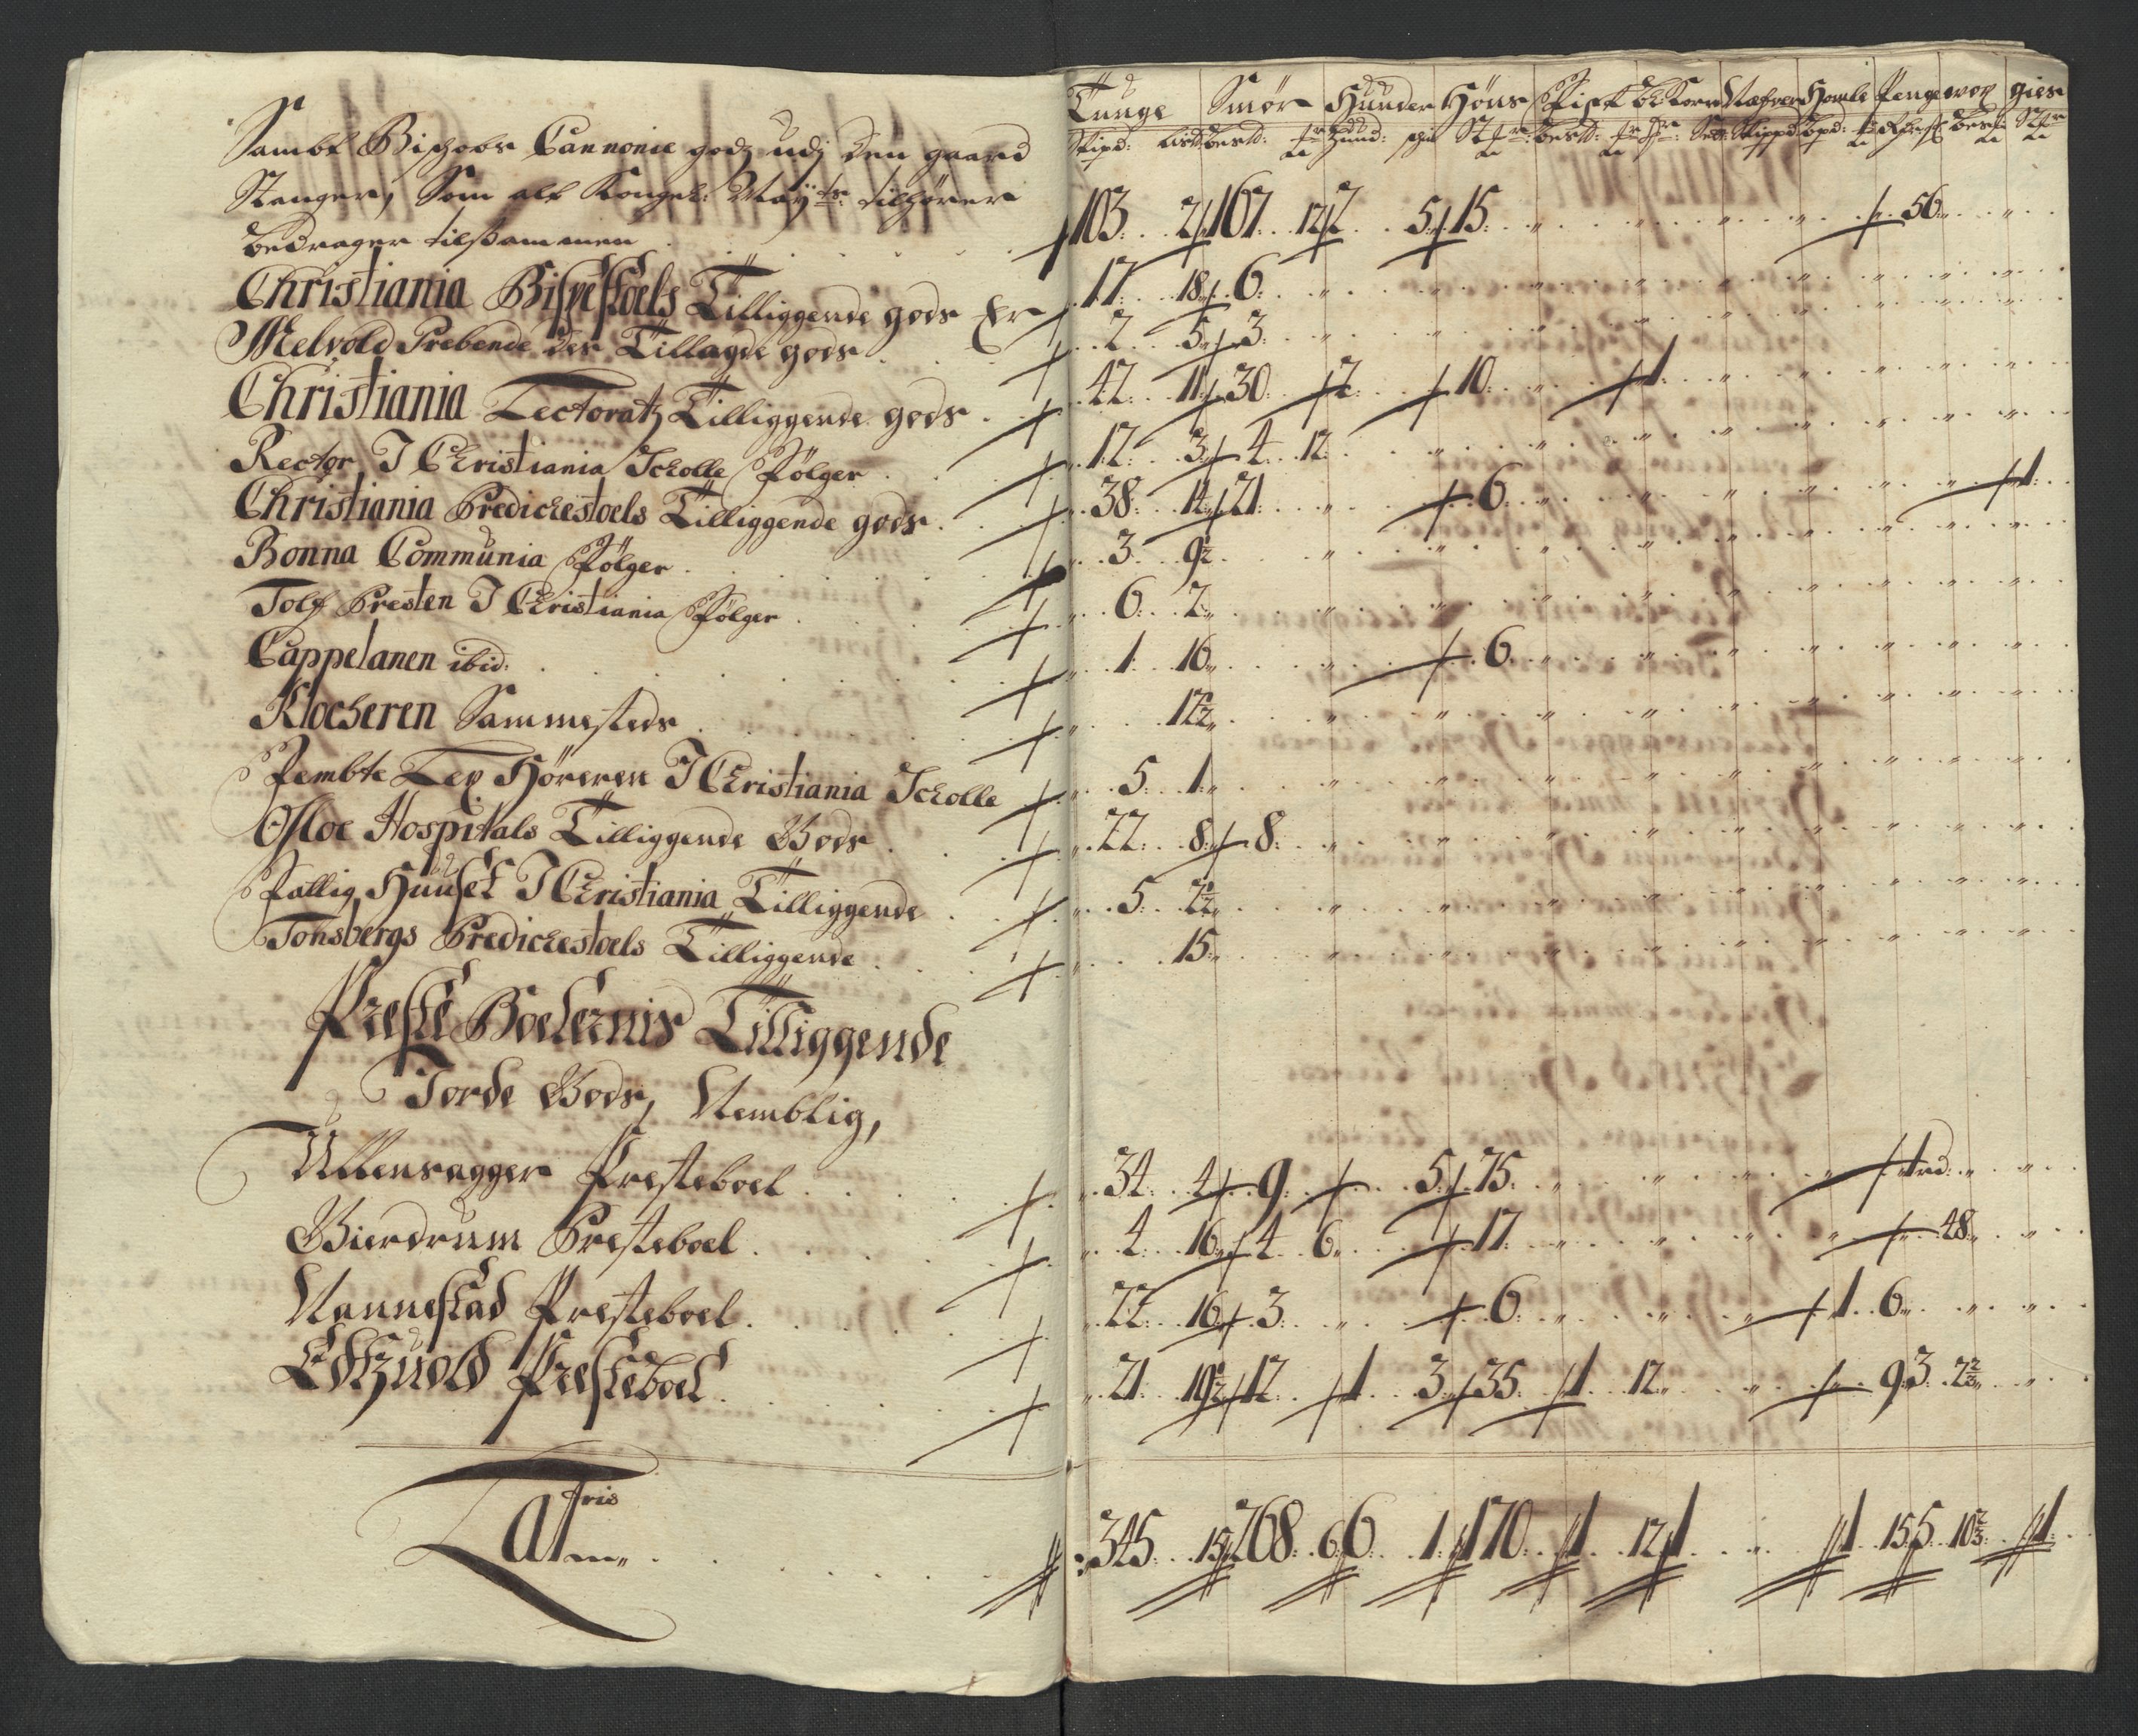 Sambt Bischobs Cannonie godz udj den gaard
Stanger, Som alt Kongel: Maÿtz: tilhörer
bedrager tilsammen
Christiania Bispestoels Tilliggende gods Er
Melvold Prebende der Tillagde gods
Christiania Lectoratz Tilliggende gods
Rector I Christiania Scholle Fölger
Christiania Predichestoels Tilliggende gods
Bonna Communia Fölger
Tolf Presten I Christiania Fölger
Cappelanen ibid:
Klocheren Sammesteds
Fembte Lex Höreren I Christiania Scholle
Osloe Hospitals Tilliggende Gods
Fattig Huuset I Christiania Tilliggende
Tonsbergs Predichestoels Tilliggende
Preste Boelernis Tilliggende
Jorde Gods, Nemblig,
Ullensagger Presteboel
Gierdrum Presteboel
Nannestad Presteboel
Edtzuold Presteboel
Latris
m
Tunge Smör Huuder Höns Fisk Korn Næfver Homle Penge gies
103 2 167 12 2 5 15 56
17 18 6
2 5 3
42 11 30 2 10 1
12 3 4 12
38 14 21 6 1
3 9½
6 2
1 16 6
12½
5 1
22 8 8
5 2½
15
34 4 9 5 75 1
4 16 4 6 17 48
22 16 3 6 1 6
21 19½ 12 1 3 35 1 12 9 3 2⅔
345 15 268 6 6 1 170 1 12 1 1 15 5 10⅔ 1